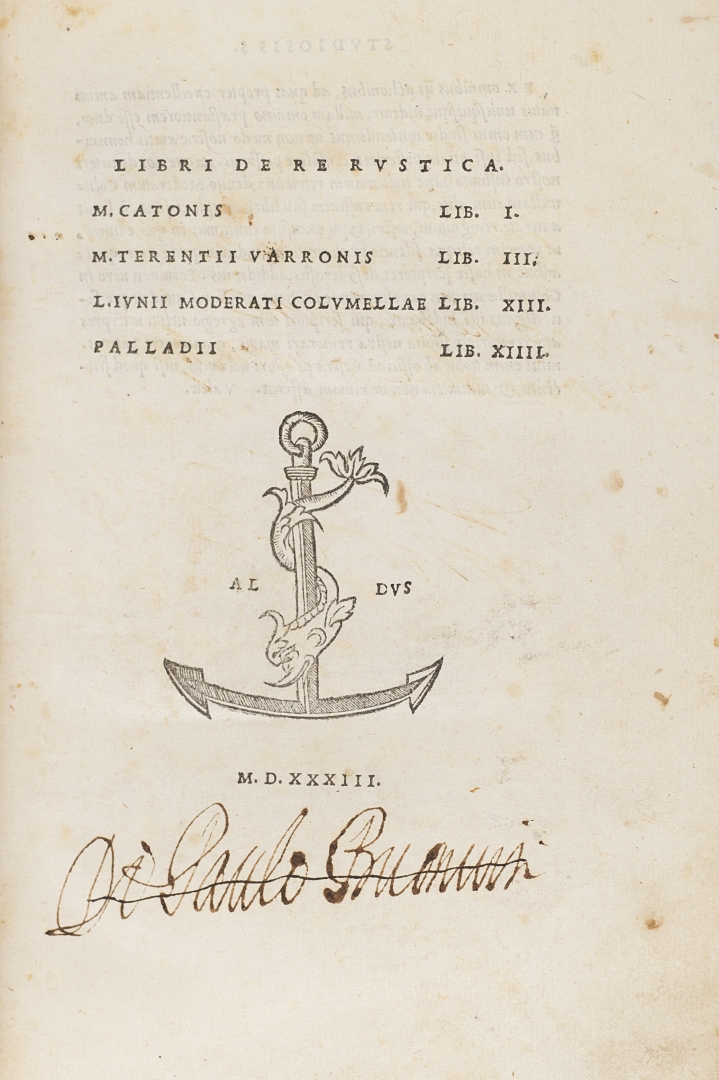 LIBRI DE RE RVSTICA.
M. CATONIS LIB. I.
M. TERENTII VARRONIS LIB. III.
L. IVNII MODERATI COLVMELLAE LIB. XIII.
PALLADII LIB. XIIII.
AL DVS
M. D. XXXIII.
Di Paulo